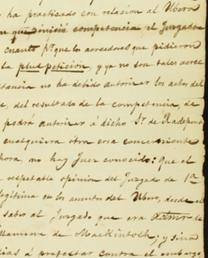 ha practicado con relacion al Ubero
que inició competencia el Juzgado
cuanto pr. que los acreedores que pidieron
la plus peticion, y ya no son tales acree
tancia no ha debido autorizar los actos del
, del resultado de la competencia, de
podrá autorizar á dicho Sr. de
cualquiera otra era concerniente
hora, no hay Juez conocido: que el
respetable opinion del Juzgado de 1a
legítima en los asuntos del Ubero, desde el
saber al Juzgado que era
Mackintosh; y
dias á protestar contra el embargo